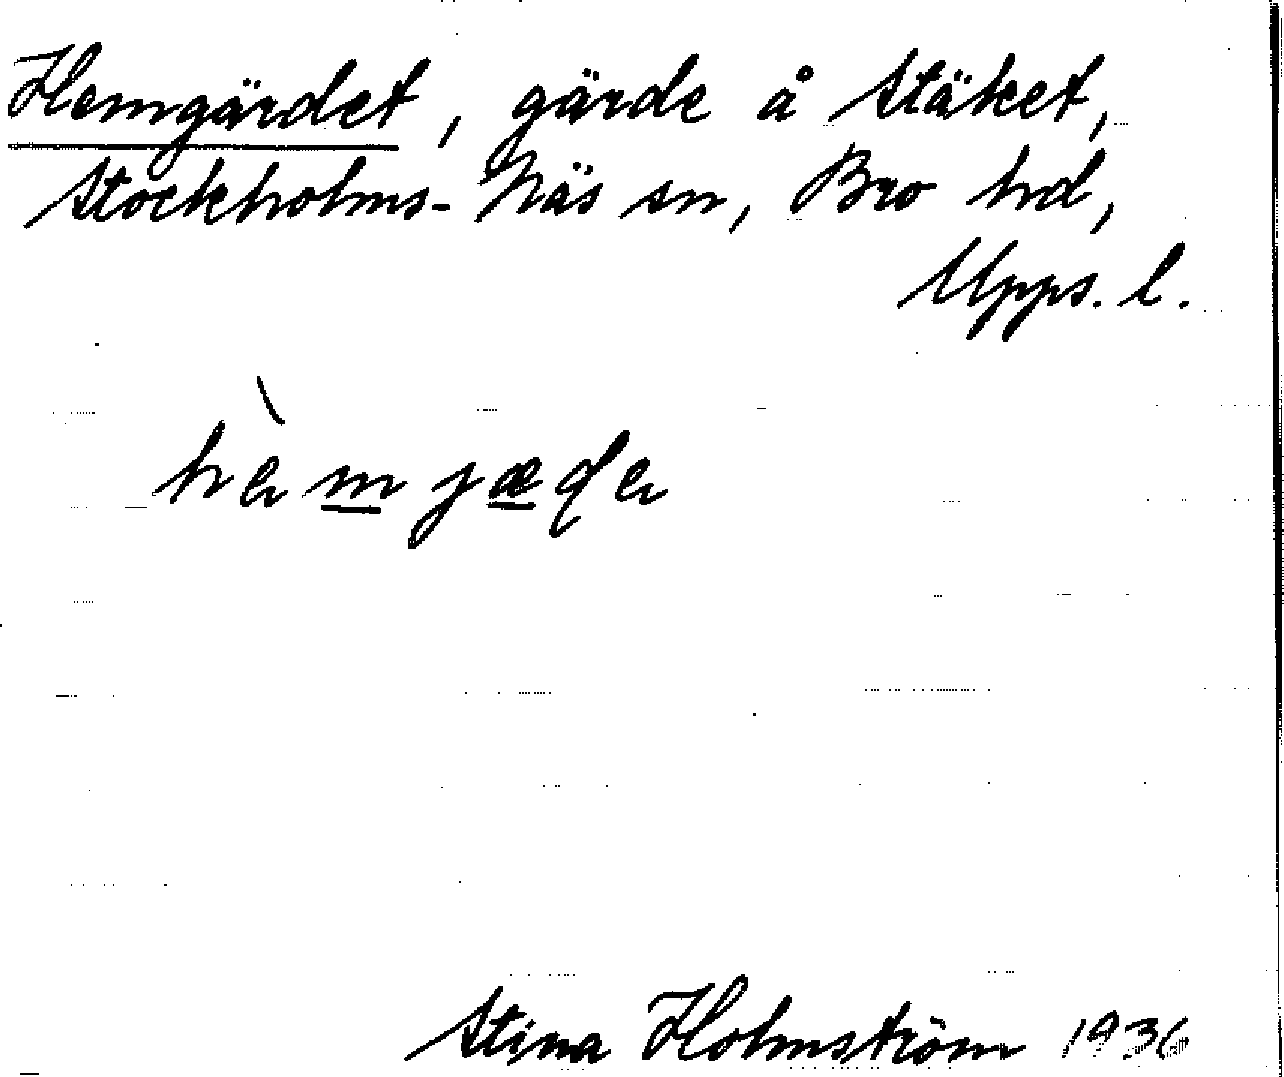 Hemgärdet, gärde å Stäket,
Stockholms-Näs sn, Bro hd,
Upps. l.
Stina Holmström 1936